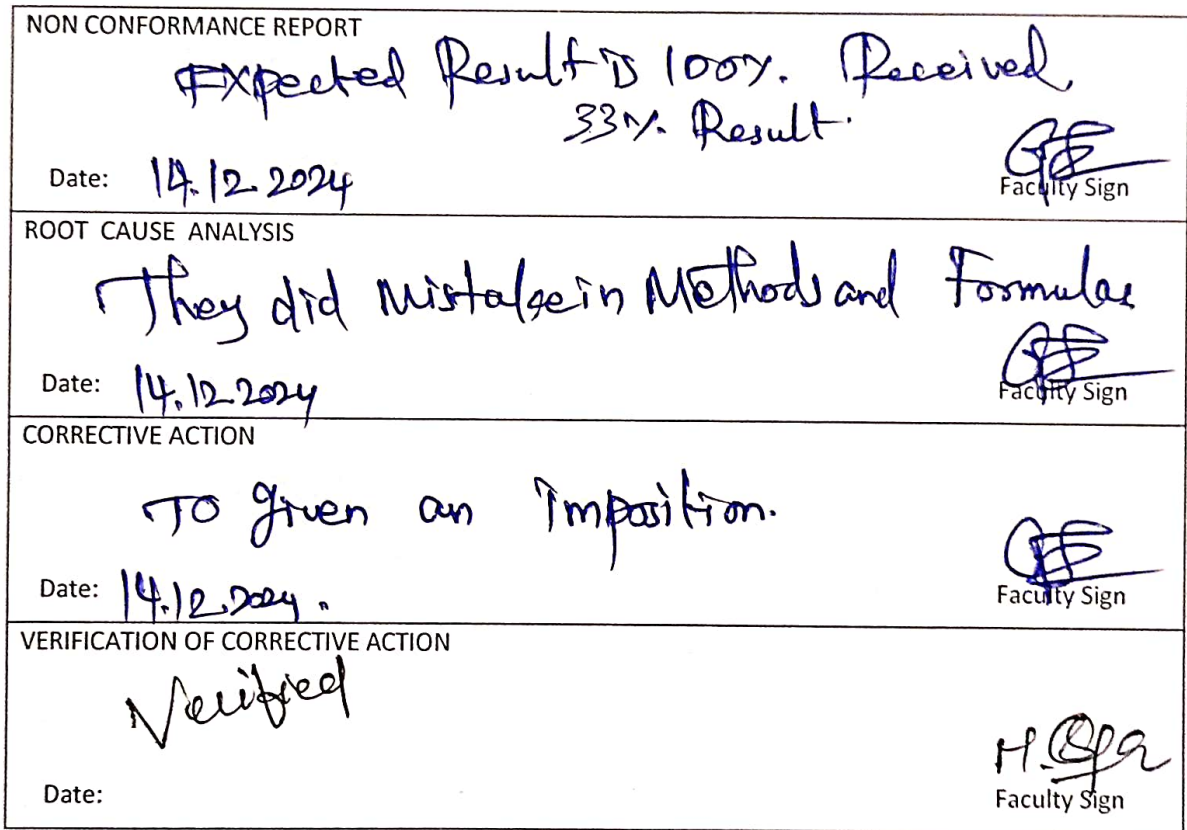 NON CONFORMANCE REPORT
Expected Result is 100%. Received
33% Result.
Date: 14.12.2024
Faculty Sign
ROOT CAUSE ANALYSIS
They did Mistake in Methods and Formulas
Date: 14.12.2024
Faculty Sign
CORRECTIVE ACTION
To given an Imposition.
Date: 14.12.2024.
Faculty Sign
VERIFICATION OF CORRECTIVE ACTION
Verified
Date:
Faculty Sign